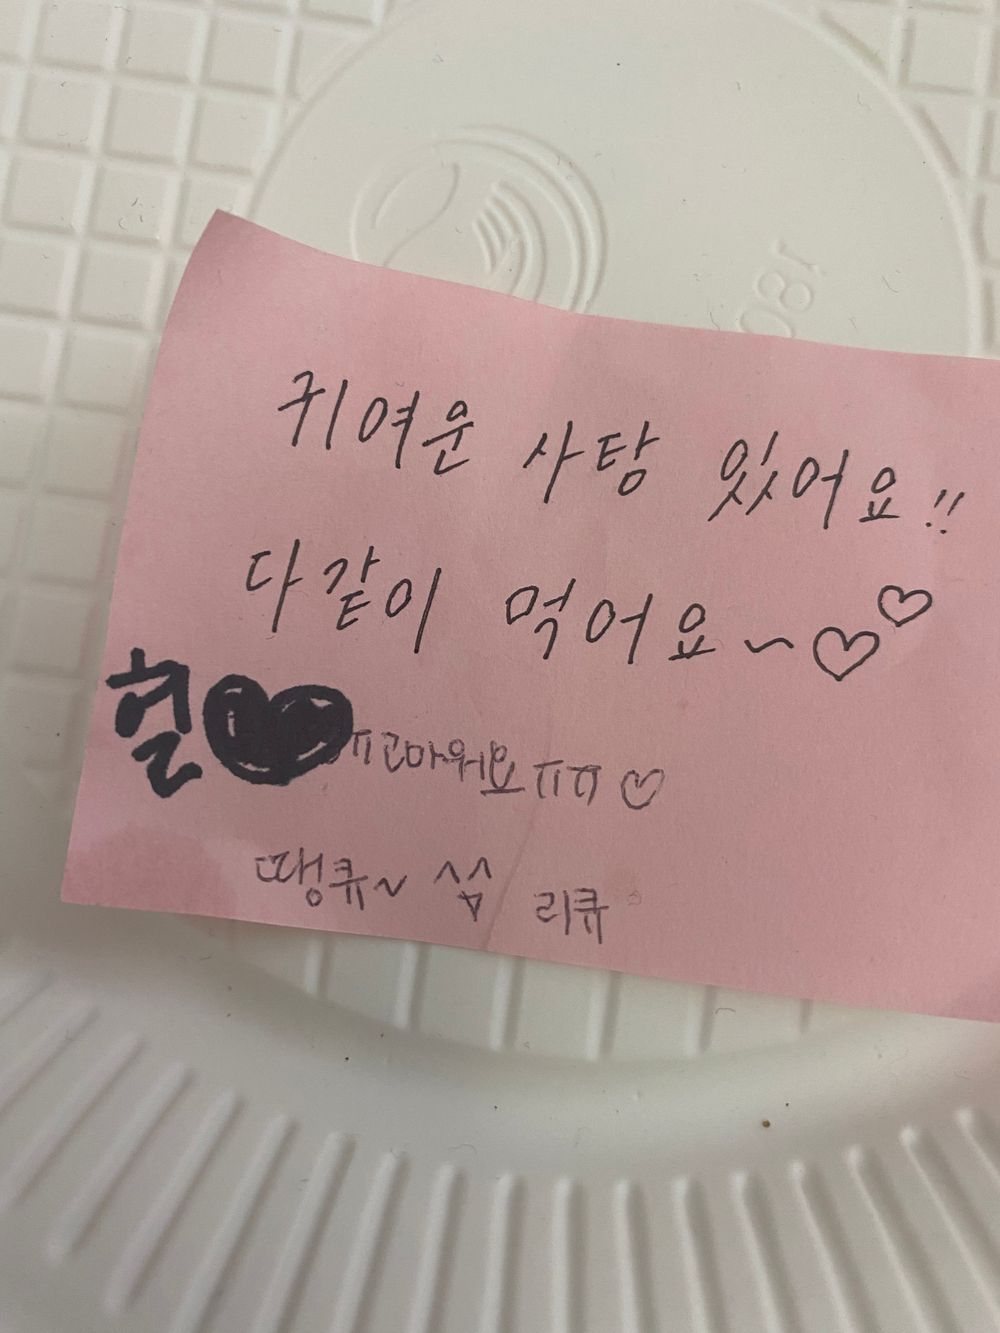 귀여운 사탕 있어요!!
다같이 먹어요~♡♡
헐♥ㅠ고마워요ㅠㅠ♡
땡큐~ ^^ 리큐
180